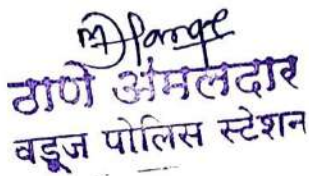 ठाणे अंमलदार
वडूज पोलिस स्टेशन